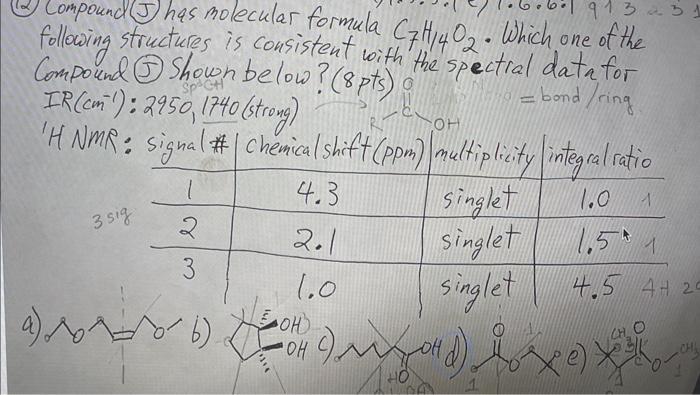 ② Compound Ⓙ has molecular formula C₇H₁₄O₂. Which one of the
following structures is consistent with the spectral data for
Compound Ⓙ Shown below? (8pts)
sp³CH
IR(cm⁻¹): 2950, 1740 (strong)
= bond/ring
O
R C OH
¹H NMR: signal # chemical shift (ppm) multiplicity integral ratio
1 4.3 singlet 1.0 1
3 sig 2 2.1 singlet 1.5 1
3 1.0 singlet 4.5 4H
a) O O b) OH OH c) OH HO d) O O e) CH₃ O O CH₃